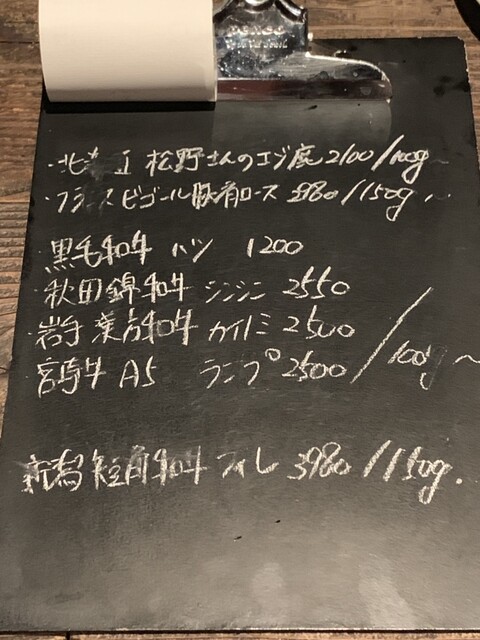 PENCO
・北 松野さんのエゾ鹿 2100/100g~
・フランスビゴール豚肩ロース 2980/150g~
黒毛和牛 ハツ 1200
秋田錦和牛 シンシン 2550
岩手 和牛 カイノミ 2500
宮崎牛 A5 ランプ 2500 /100g~
新潟短角和牛 フィレ 3980/150g.